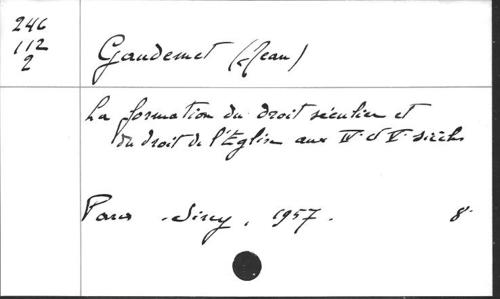 246
112
2
Gaudemet (Jean)
La formation du droit séculier et
du droit de l'Eglise aux IVe et Ve siècles
Paris. Sirey, 1957.
8°